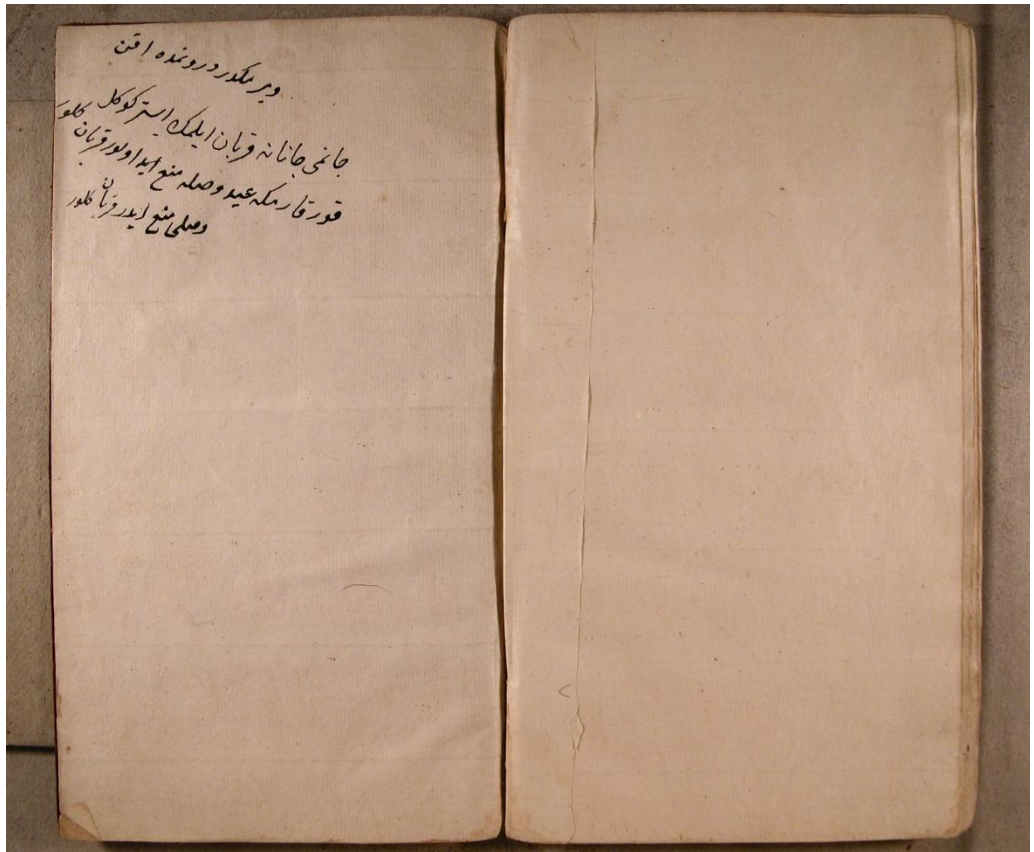 وبر مكدر درونمده اقن
جانمی جانانه قربان ایلمك ایستر كوكل
قورقارمكه عید وصله منع ایدا ولور قربان كلور
وصلی منع ایدر قربان كلور